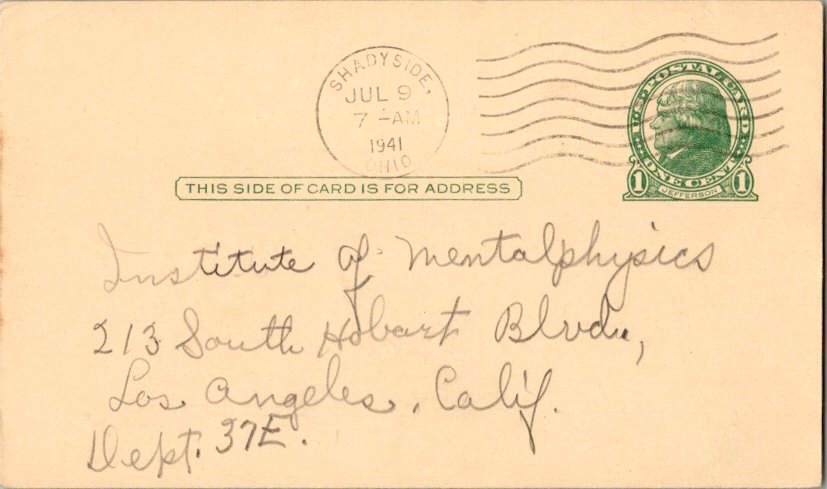 SHADYSIDE,
JUL 9
7 - AM
1941
OHIO
U.S. POSTAL CARD
ONE CENT
1 1
JEFFERSON
THIS SIDE OF CARD IS FOR ADDRESS
Institute of Mentalphysics
213 South Hobart Blvd.,
Los Angeles, Calif.
Dept. 37E.